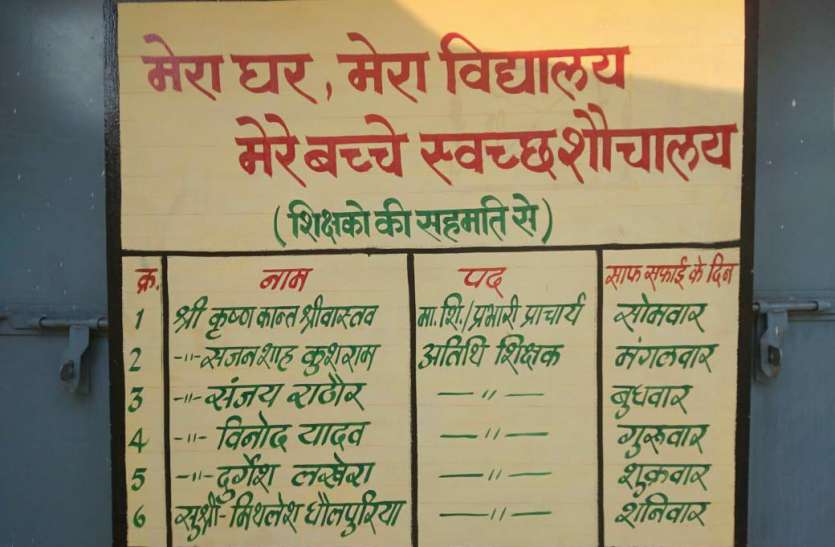 मेरा घर, मेरा विद्यालय
मेरे बच्चे स्वच्छ शौचालय
(शिक्षको की सहमति से)
क्र. नाम पद साफ सफाई के दिन
1 श्री कृष्ण कान्त श्रीवास्तव मा. शि./प्रभारी प्राचार्य सोमवार
2 -"- सजन शाह कुशराम अतिथि शिक्षक मंगलवार
3 -"- संजय राठौर —"— बुधवार
4 -"- विनोद यादव —"— गुरूवार
5 -"- दुर्गेश लखेरा —"— शुक्रवार
6 सुश्री- मिथलेश धौलपुरिया —"— शनिवार